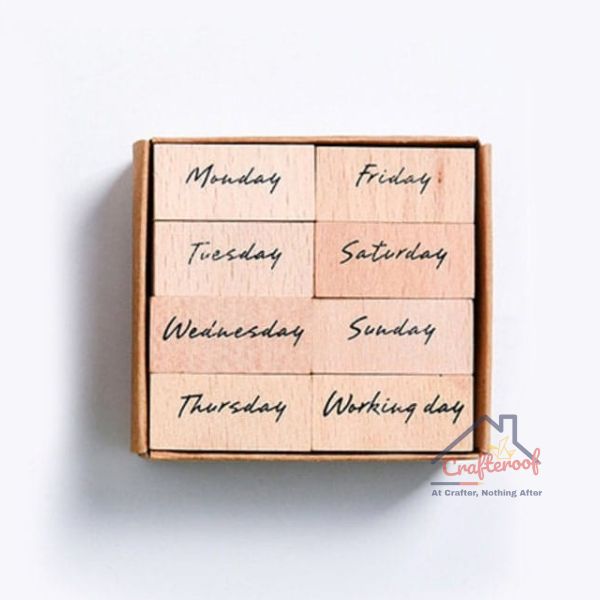 Monday
Friday
Tuesday
Saturday
Wednesday
Sunday
Thursday
Working day
Crafteroof
At Crafter, Nothing After